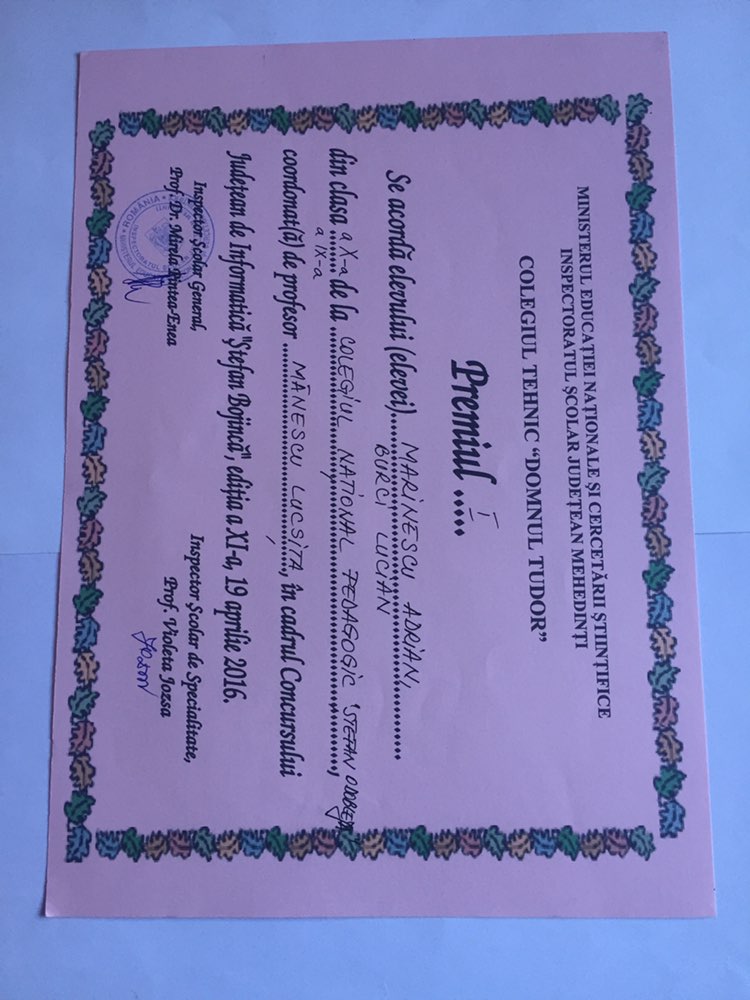 MINISTERUL EDUCAȚIEI NAȚIONALE ȘI CERCETĂRII ȘTIINȚIFICE
INSPECTORATUL ȘCOLAR JUDEȚEAN MEHEDINȚI
COLEGIUL TEHNIC “DOMNUL TUDOR”
Premiul ..I...
Se acordă elevului (elevei) MARINESCU ADRIAN,
BURCI LUCIAN
din clasa a X-a de la COLEGIUL NATIONAL PEDAGOGIC "ȘTEFAN ODOBLEJA",
a IX-a
coordonat(ă) de profesor MĂNESCU LUCSIȚA, în cadrul Concursului
Județean de Informatică "Ștefan Bojincă", ediția a XI-a, 19 aprilie 2016.
Inspector Școlar General,
Prof. Dr. Mirela Pintea-Enea
ROMÂNIA
Inspector Școlar de Specialitate,
Prof. Violeta Jozsa